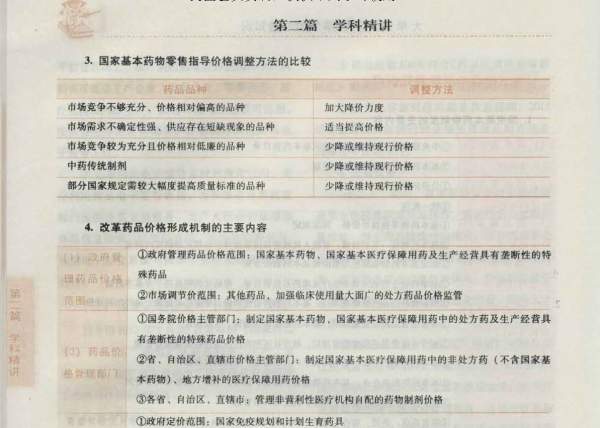 第二篇 学科精讲
3. 国家基本药物零售指导价格调整方法的比较
药品品种 调整方法
市场竞争不够充分、价格相对偏高的品种 加大降价力度
市场需求不确定性强、供应存在短缺现象的品种 适当提高价格
市场竞争较为充分且价格相对低廉的品种 少降或维持现行价格
中药传统制剂 少降或维持现行价格
部分国家规定需较大幅度提高质量标准的品种 少降或维持现行价格
4. 改革药品价格形成机制的主要内容
(1) 政府管
理药品价格
范围
①政府管理药品价格范围：国家基本药物、国家基本医疗保障用药及生产经营具有垄断性的特
殊药品
②市场调节价范围：其他药品、加强临床使用量大面广的处方药品价格监管
(2) 药品价
格管理部门
①国务院价格主管部门：制定国家基本药物、国家基本医疗保障用药中的处方药及生产经营具
有垄断性的特殊药品价格
②省、自治区、直辖市价格主管部门：制定国家基本医疗保障用药中的非处方药（不含国家基
本药物）、地方增补的医疗保障用药价格
③各省、自治区、直辖市：管理非营利性医疗机构自配的药物制剂价格
①政府定价范围：国家免疫规划和计划生育药具
第二篇 学科精讲